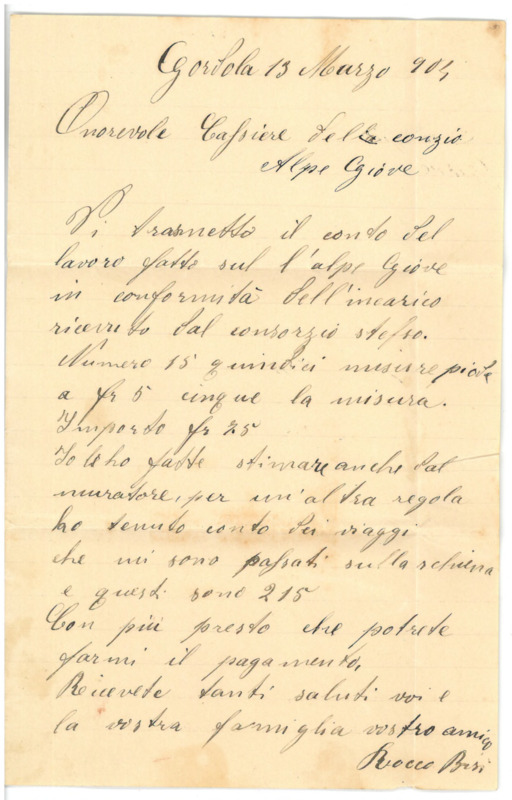 Gordola 13 Marzo 904
Onorevole Cassiere della conzio
Alpe Giove
Vi trasmetto il conto del
lavoro fatto sul l'alpe Giove
in conformità dell'incarico
ricevuto dal consorzio stesso.
Numero 15 quindici misure piode
a fr 5 cinque la misura.
Importo fr 75
Io le ho fatte stimare anche dal
muratore, per un'altra regola
ho tenuto conto dei viaggi
che mi sono passati sulla schiena
e questi sono 215
Con più presto che potrete
farmi il pagamento,
Ricevete tanti saluti voi e
la vostra famiglia vostro amico
Rocco